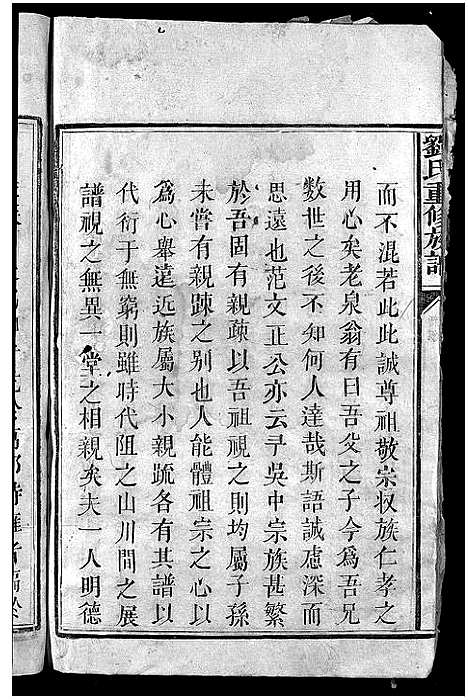 劉氏重修族譜
而不混若此此誠尊祖敬宗収族仁孝之
用心矣老泉翁有曰吾父之子今爲吾兄
數世之後不知何人達哉斯語誠慮深而
思遠也范文正公亦云予吳中宗族甚繁
於吾固有親疎以吾祖視之則均屬子孫
未甞有親踈之别也人能體祖宗之心以
爲心舉遠近族屬大小親䟽各有其譜以
代衍于無窮則雖時代阻之山川間之展
譜視之無異一堂之相親矣夫一人明德